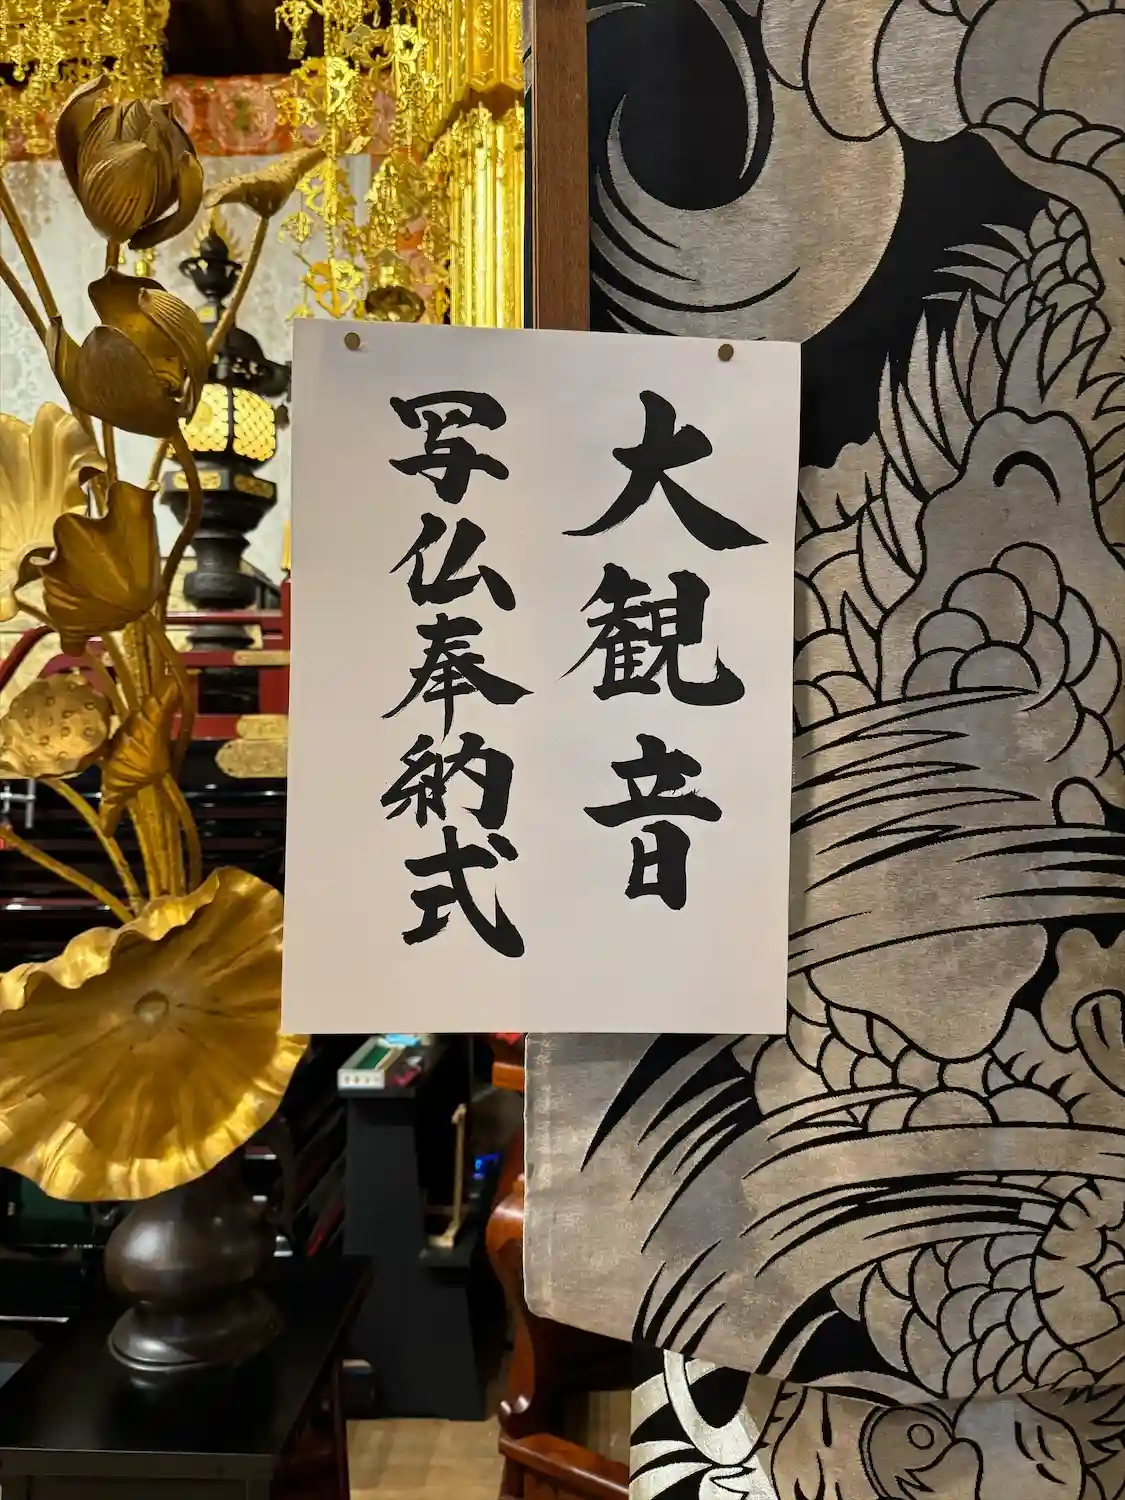 大観音
写仏奉納式